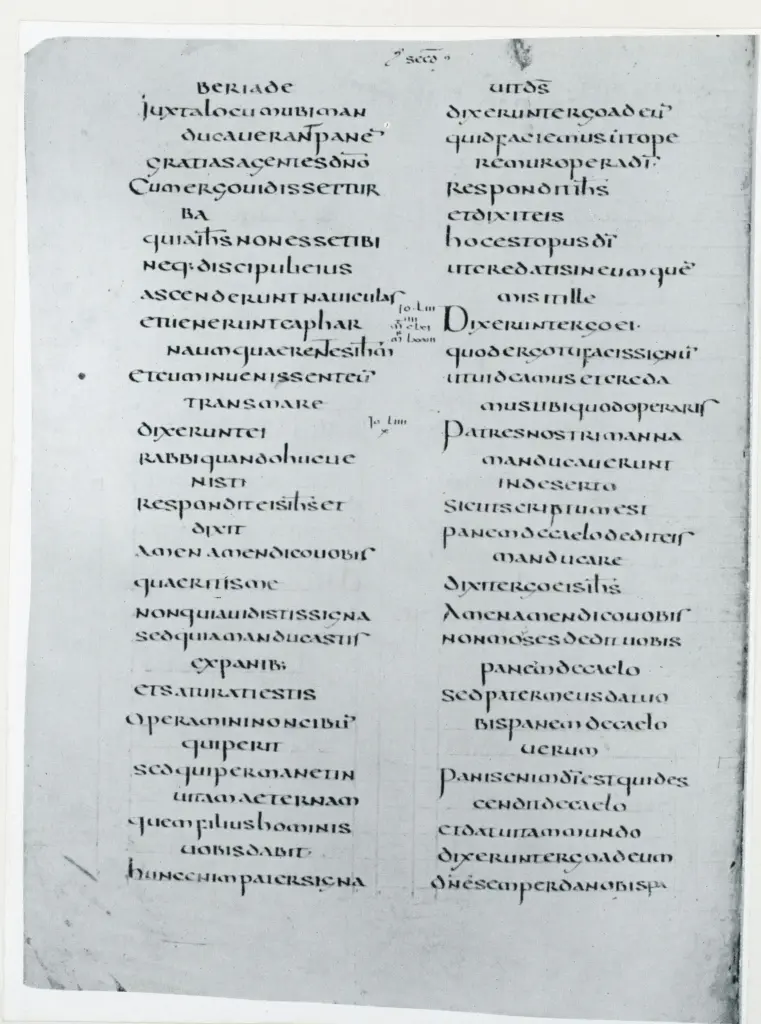 secd
BERIADE
juxtalocumubiman
ducaverantpanē
gratiasagentesdnō
Cumergouidissettur
ba
quiaih̄snonessetibi
neq:discipulieius
ascenderuntnauiculas
etueneruntcaphar
naumquaerentesih̄m
etcuminuenissenteū
transmare
dixeruntei
rabbiquandohucue
nisti
responditeisih̄set
dixit
Amenamendicouobis
quaeritisme
nonquiauidistissigna
sedquiamanducastis
expanib;
etsaturatiestis
operamininoncibū
quiperit
sedquipermanetin
uitamaeternam
quemfiliushominis
uobisdabit·
huncenimpatersigna
Jo·liii
Jo liiii
x
uitds̄
dixeruntergoadeū
quidfaciemusutope
remuroperadī·
Respondit ih̄s
etdixiteis
hocestopusdī
utcredatisineumquē
misitille
Dixeruntergoei·
quodergotufacissignū
utuideamusetcreda
mustibiquodoperaris
Patresnostrimanna
manducauerunt
indeserto
sicutscriptumest
panemdecaelodediteis
manducare
dixitergoeisih̄s
Amenamendicouobis
nonmosesdedituobis
panemdecaelo
sedpatermeusdatuo
bispanemdecaelo
uerum
panisenimdīestquides
cenditdecaelo
etdatuitammundo
dixeruntergoadeum
dn̄esemperdanobispa